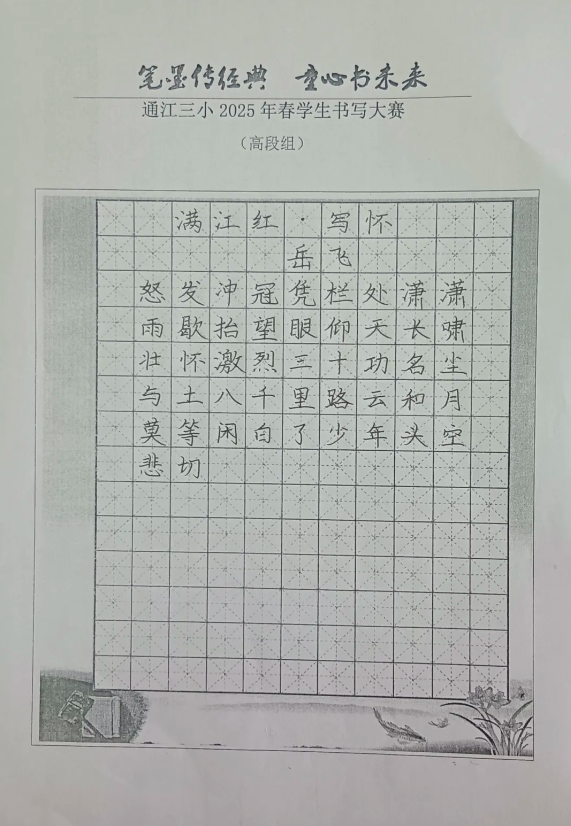 笔墨传经典 童心书未来
通江三小 2025 年春学生书写大赛
（高段组）
满江红·写怀
岳飞
怒发冲冠凭栏处潇潇
雨歇抬望眼仰天长啸
壮怀激烈三十功名尘
与土八千里路云和月
莫等闲白了少年头空
悲切